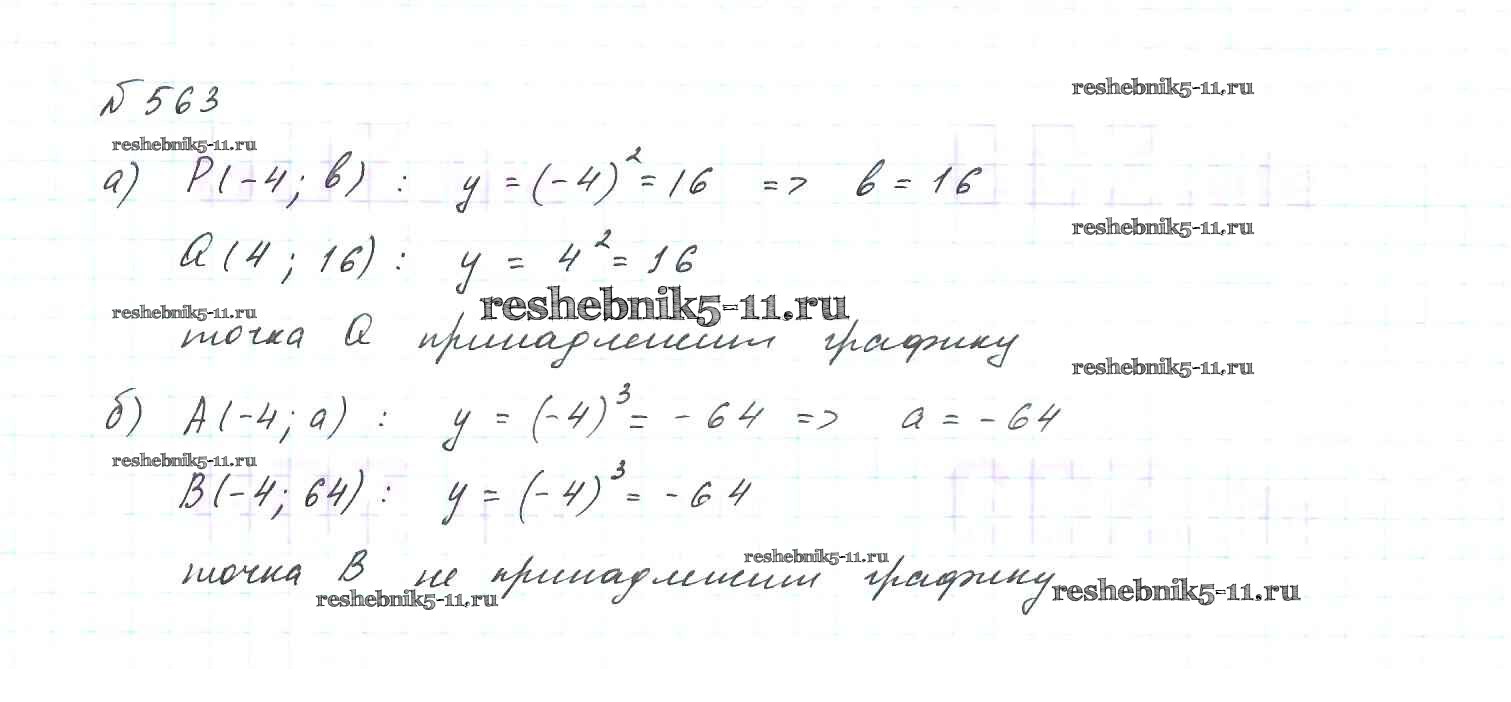 № 563
reshebnik5-11.ru
reshebnik5-11.ru
а) P(-4; в) : y = (-4)² = 16 => в = 16
reshebnik5-11.ru
Q(4; 16) : y = 4² = 16
reshebnik5-11.ru
reshebnik5-11.ru
точка Q принадлежит графику
reshebnik5-11.ru
б) A(-4; a) : y = (-4)³ = -64 => a = -64
reshebnik5-11.ru
B(-4; 64) : y = (-4)³ = -64
reshebnik5-11.ru
точка B не принадлежит графику
reshebnik5-11.ru
reshebnik5-11.ru